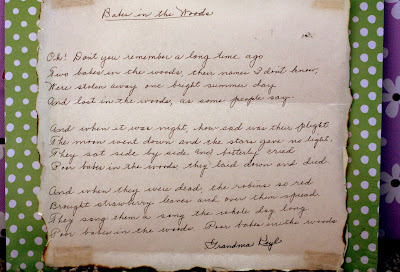 Babes in the Woods
Oh! Don't you remember a long time ago
Two babes in the woods, their names I don't know,
Were stolen away one bright summer day
And lost in the woods, as some people say.
And when it was night, how sad was their plight
The moon went down and the stars gave no light.
They sat side by side and bitterly cried
Poor babes in the woods, they laid down and died.
And when they were dead, the robins so red
Brought strawberry leaves and over them spread.
They sang them a song the whole day long
Poor babes in the woods. Poor babes in the woods
Grandma